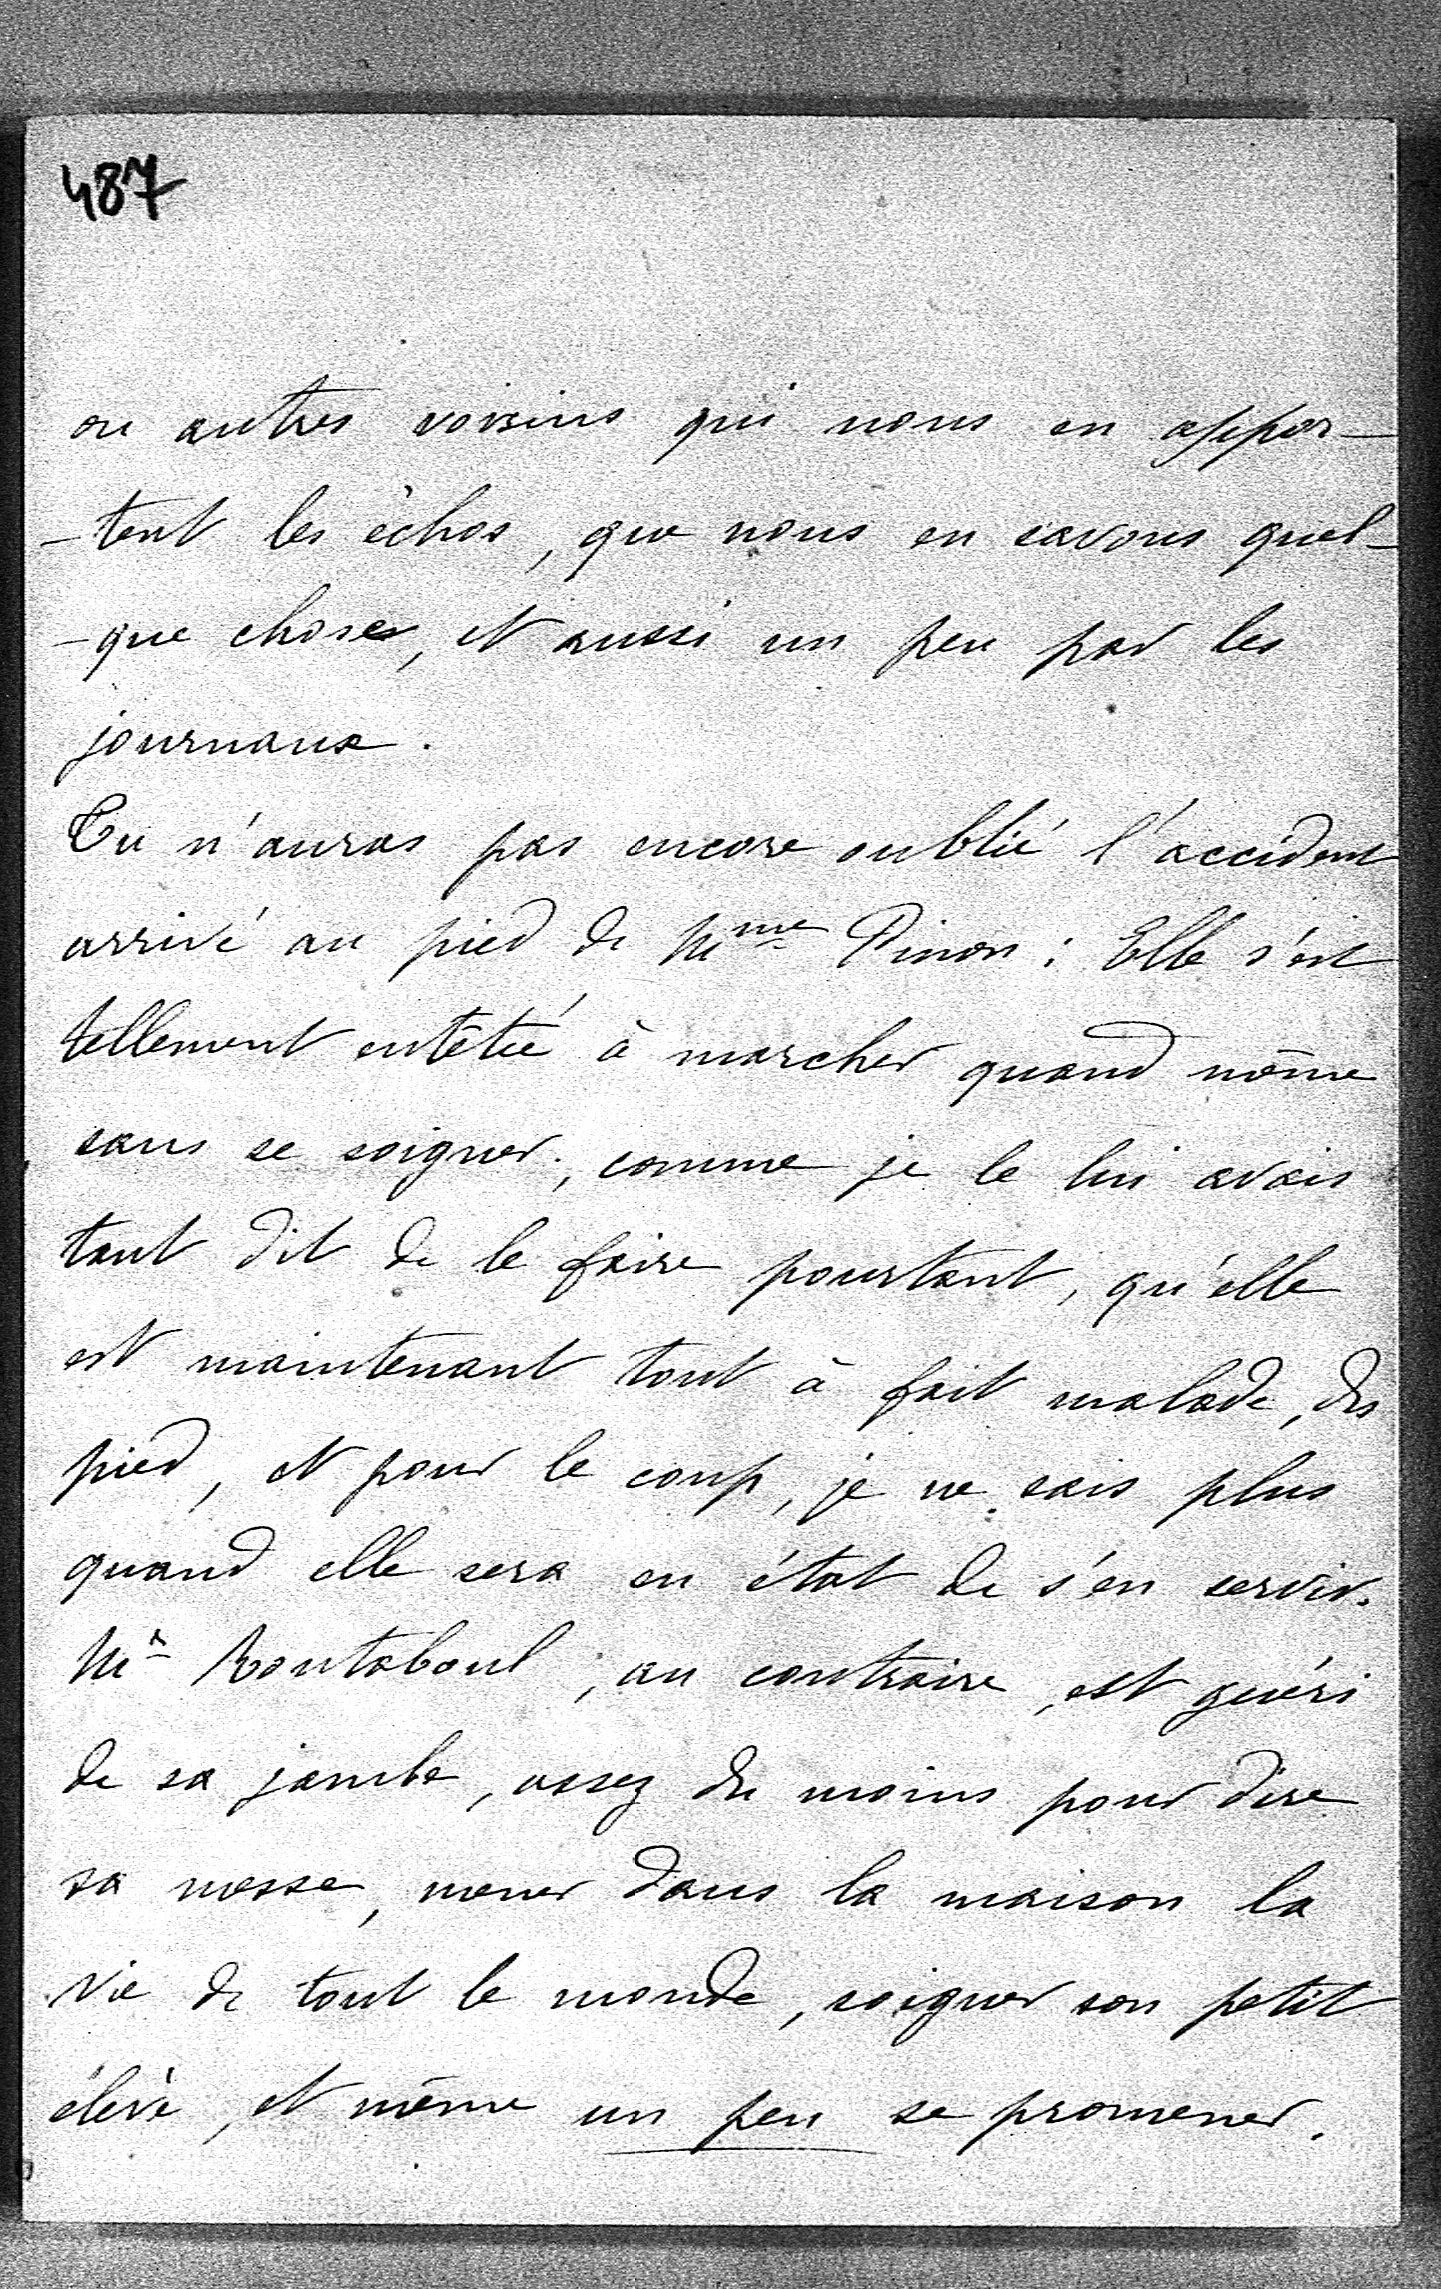 487
ou autres voisins qui nous en appor-
-tent les échos, que nous en savons quel-
-que choses, et aussi un peu par les
journaux.
Tu n'auras pas encore oublié l'accident
arrivé au pied de Mme Pinon : Elle s'est
tellement entêtée à marcher quand même
sans se soigner, comme je le lui avais
tant dit de le faire pourtant, qu'elle
est maintenant tout à fait malade, du
pied, et pour le coup, je ne sais plus
quand elle sera en état de s'en servir.
Mr Routaboul, au contraire, est guéri
de sa jambe, assez du moins pour dire
sa messe, mener dans la maison la
vie de tout le monde, soigner son petit
élève, et même un peu se promener.